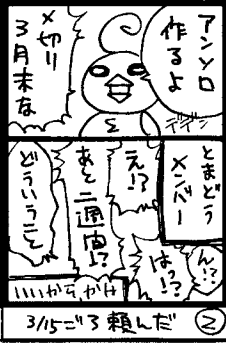 アンソロ
作るよ
〆切り
3月末な
デデン
とまどう
メンバー
ん!?
はっ!?
え!?
あと二週間!?
どういうこと
いいからかけ
3/15ごろ頼んだ
②